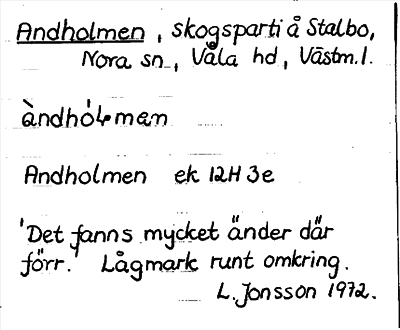 Andholmen, skogsparti å Stalbo,
Nora sn., Våla hd, Västm.l.
àndhòlman
Andholmen ek 12H 3e
'Det fanns mycket änder där
förr.' Lågmark runt omkring.
L. Jonsson 1972.